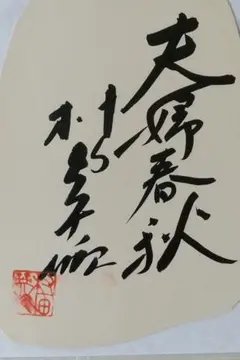 夫婦春秋
村田英雄